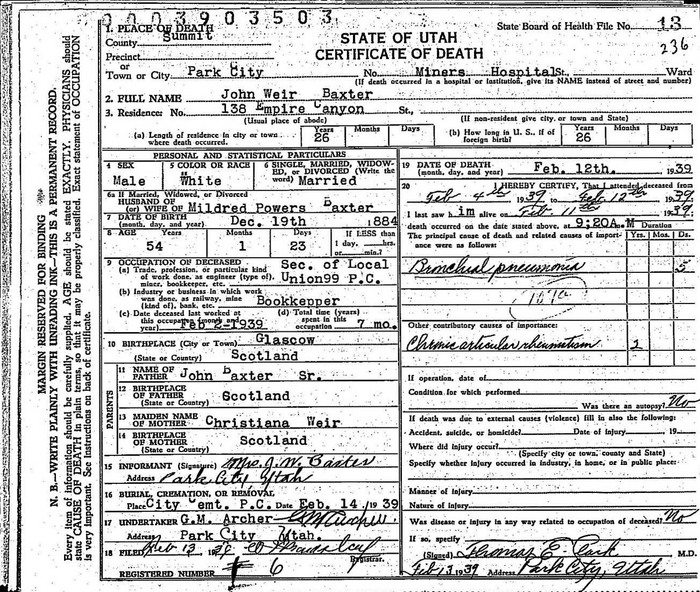 0003903503
1. PLACE OF DEATH
County Summit
Precinct
or
Town or City Park City
STATE OF UTAH
CERTIFICATE OF DEATH
State Board of Health File No. 13
236
No. Miners Hospital St., Ward
(If death occurred in a hospital or institution, give its NAME instead of street and number)
2. FULL NAME John Weir Baxter
3. Residence: No. 138 Empire Canyon St.,
(Usual place of abode) (If non-resident give city, or town and State)
(a) Length of residence in city or town where death occurred. Years 26 Months Days
(b) How long in U. S., if of foreign birth? Years 26 Months Days
PERSONAL AND STATISTICAL PARTICULARS
4 SEX Male
5 COLOR OR RACE White
6 SINGLE, MARRIED, WIDOWED, OR DIVORCED (Write the word) Married
6a If Married, Widowed, or Divorced
HUSBAND OF
(or) WIFE OF Mildred Powers Baxter
7 DATE OF BIRTH
(month, day, and year) Dec. 19th 1884
8 AGE Years 54 Months 1 Days 23 If LESS than 1 day, hrs. or min.?
9 OCCUPATION OF DECEASED
(a) Trade, profession, or particular kind of work done, as engineer (type of), miner, bookkeeper, etc. Sec. of Local Union99 P.C.
(b) Industry or business in which work was done, as railway, mine (kind of), bank, etc. Bookkepper
(c) Date deceased last worked at this occupation (month and year) Feb 2-1939
(d) Total time (years) spent in this occupation 7 mo.
10 BIRTHPLACE (City or Town) Glascow
(State or Country) Scotland
PARENTS
11 NAME OF FATHER John Baxter Sr.
12 BIRTHPLACE OF FATHER Scotland
(State or Country)
13 MAIDEN NAME OF MOTHER Christiana Weir
14 BIRTHPLACE OF MOTHER Scotland
(State or Country)
15 INFORMANT (Signature) Mrs. J. W. Baxter
Address Park City, Utah
16 BURIAL, CREMATION, OR REMOVAL
Place City Cemt. P.C. Date Feb. 14, 1939
17 UNDERTAKER G.M. Archer
Address Park City Utah.
18 FILED Feb 13
Registrar.
REGISTERED NUMBER 6
19 DATE OF DEATH
(month, day, and year) Feb. 12th. 1939
20 I HEREBY CERTIFY, That I attended deceased from
Feb 4th 1939 to Feb 12th 1939
I last saw him alive on Feb 11th 1939
death occurred on the date stated above, at 9:20A.M Duration
The principal cause of death and related causes of importance were as follows: Yrs. Mos. Ds.
Bronchial pneumonia 5
107a
Other contributory causes of importance:
Chronic articular rheumatism 2
If operation, date of
Condition for which performed
Was there an autopsy? No
If death was due to external causes (violence) fill in also the following:
Accident, suicide, or homicide? Date of injury 19
Where did injury occur?
(Specify city or town, county and State)
Specify whether injury occurred in industry, in home, or in public place:
Manner of injury
Nature of injury
Was disease or injury in any way related to occupation of deceased? No
If so, specify
(Signed) Thomas E. M.D.
Feb 13 1939 Address Park City, Utah
MARGIN RESERVED FOR BINDING
N. B.—WRITE PLAINLY WITH UNFADING INK—THIS IS A PERMANENT RECORD.
Every item of information should be carefully supplied. AGE should be stated EXACTLY. PHYSICIANS should
state CAUSE OF DEATH in plain terms, so that it may be properly classified. Exact statement of OCCUPATION
is very important. See Instructions on back of certificate.